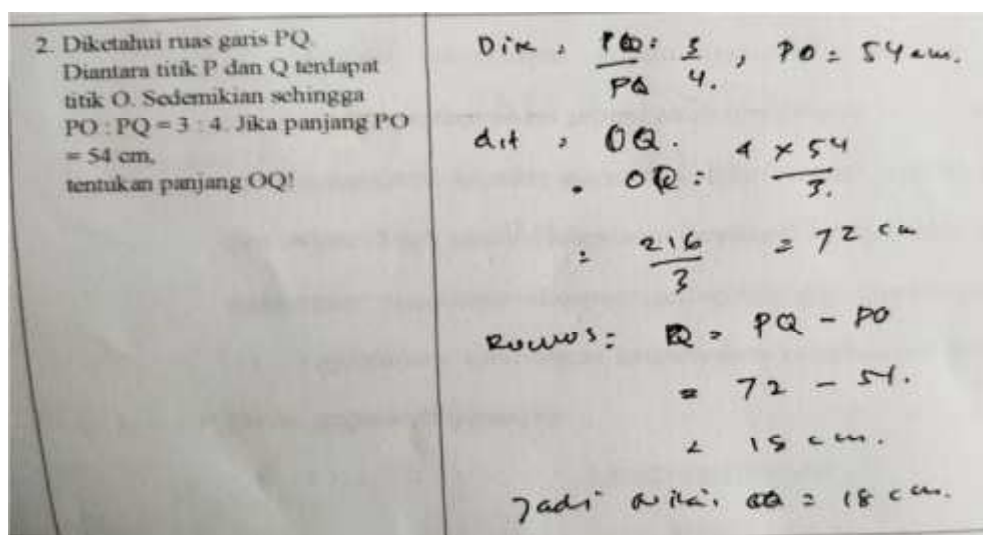 2. Diketahui ruas garis PQ.
Diantara titik P dan Q terdapat
titik O. Sedemikian sehingga
PO : PQ = 3 : 4. Jika panjang PO
= 54 cm,
tentukan panjang OQ!
Dik : PO : 3 , PO = 54 cm.
PQ 4.
dit : OQ.
OQ : 4 x 54
3.
: 216 = 72 cm
3
Rumus : = PQ - PO
= 72 - 54.
= 18 cm.
Jadi nilai OQ = 18 cm.